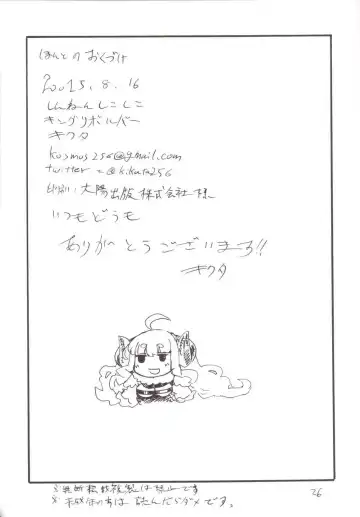 ほんとの おくづけ
2015.8.16
しんねんしこしこ
キングリボルバー
キクタ
kosmos256@gmail.com
twitter = @kikuta256
印刷:大陽出版株式会社様
いつもどうも
ありがとうございまる!!
キクタ
※無断転載複製は禁止です
※未成年の方は読んだらダメです。
26